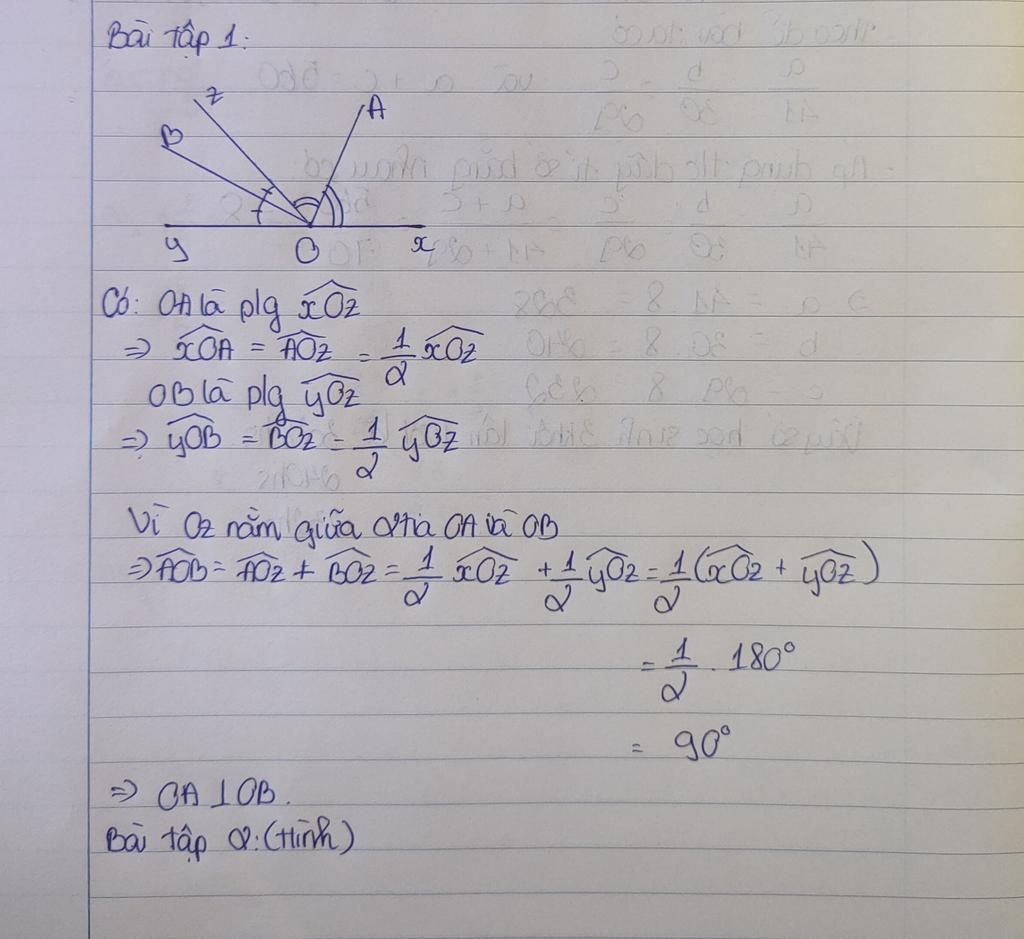 Bài tập 1:
z
A
B
y
O
x
Có: OA là plg xOz
⇒ xOA = AOz = 1/2 xOz
OB là plg yOz
⇒ yOB = BOz = 1/2 yOz
Vì Oz nằm giữa 2 tia OA và OB
⇒ AOB = AOz + BOz = 1/2 xOz + 1/2 yOz = 1/2 (xOz + yOz)
= 1/2 . 180°
= 90°
⇒ OA ⊥ OB.
Bài tập 2: (Hình)